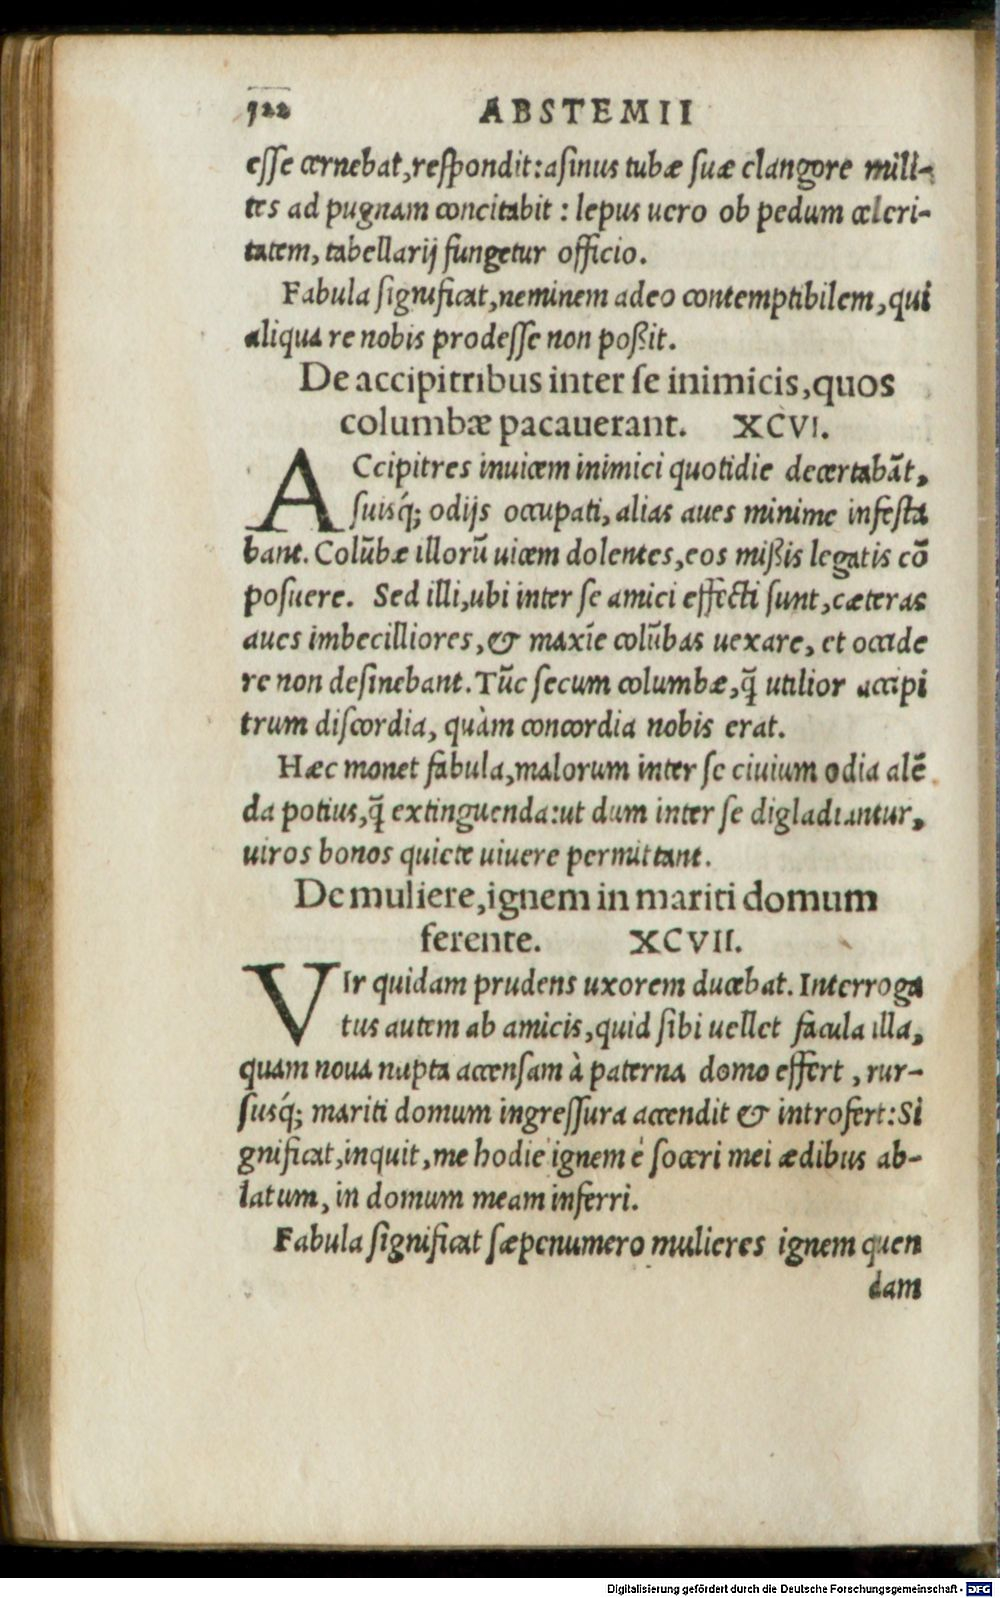 122 ABSTEMII
esse cernebat, respondit: asinus tubæ suæ clangore mili-
tes ad pugnam concitabit: lepus uero ob pedum celeri-
tatem, tabellarij fungetur officio.
Fabula significat, neminem adeo contemptibilem, qui
aliqua re nobis prodesse non poßit.
De accipitribus inter se inimicis, quos
columbæ pacauerant. XCVI.
ACcipitres inuicem inimici quotidie decertabãt,
suisq́; odijs occupati, alias aues minime infesta
bant. Colũbæ illorũ uicem dolentes, eos mißis legatis cõ
posuere. Sed illi, ubi inter se amici effecti sunt, cæteras
aues imbecilliores, & maxĩe colũbas uexare, et occide
re non desinebant. Tũc secum columbæ, q̃ utilior accipi
trum discordia, quàm concordia nobis erat.
Hæc monet fabula, malorum inter se ciuium odia alẽ
da potius, q̃ extinguenda: ut dum inter se digladiantur,
uiros bonos quiete uiuere permittant.
De muliere, ignem in mariti domum
ferente. XCVII.
VIr quidam prudens uxorem ducebat. Interroga
tus autem ab amicis, quid sibi uellet facula illa,
quam noua nupta accensam à paterna domo effert, rur-
susq́; mariti domum ingressura accendit & introfert: Si
gnificat, inquit, me hodie ignem è soceri mei ædibus ab-
latum, in domum meam inferri.
Fabula significat sæpenumero mulieres ignem quen
dam
Digitalisierung gefördert durch die Deutsche Forschungsgemeinschaft - DFG